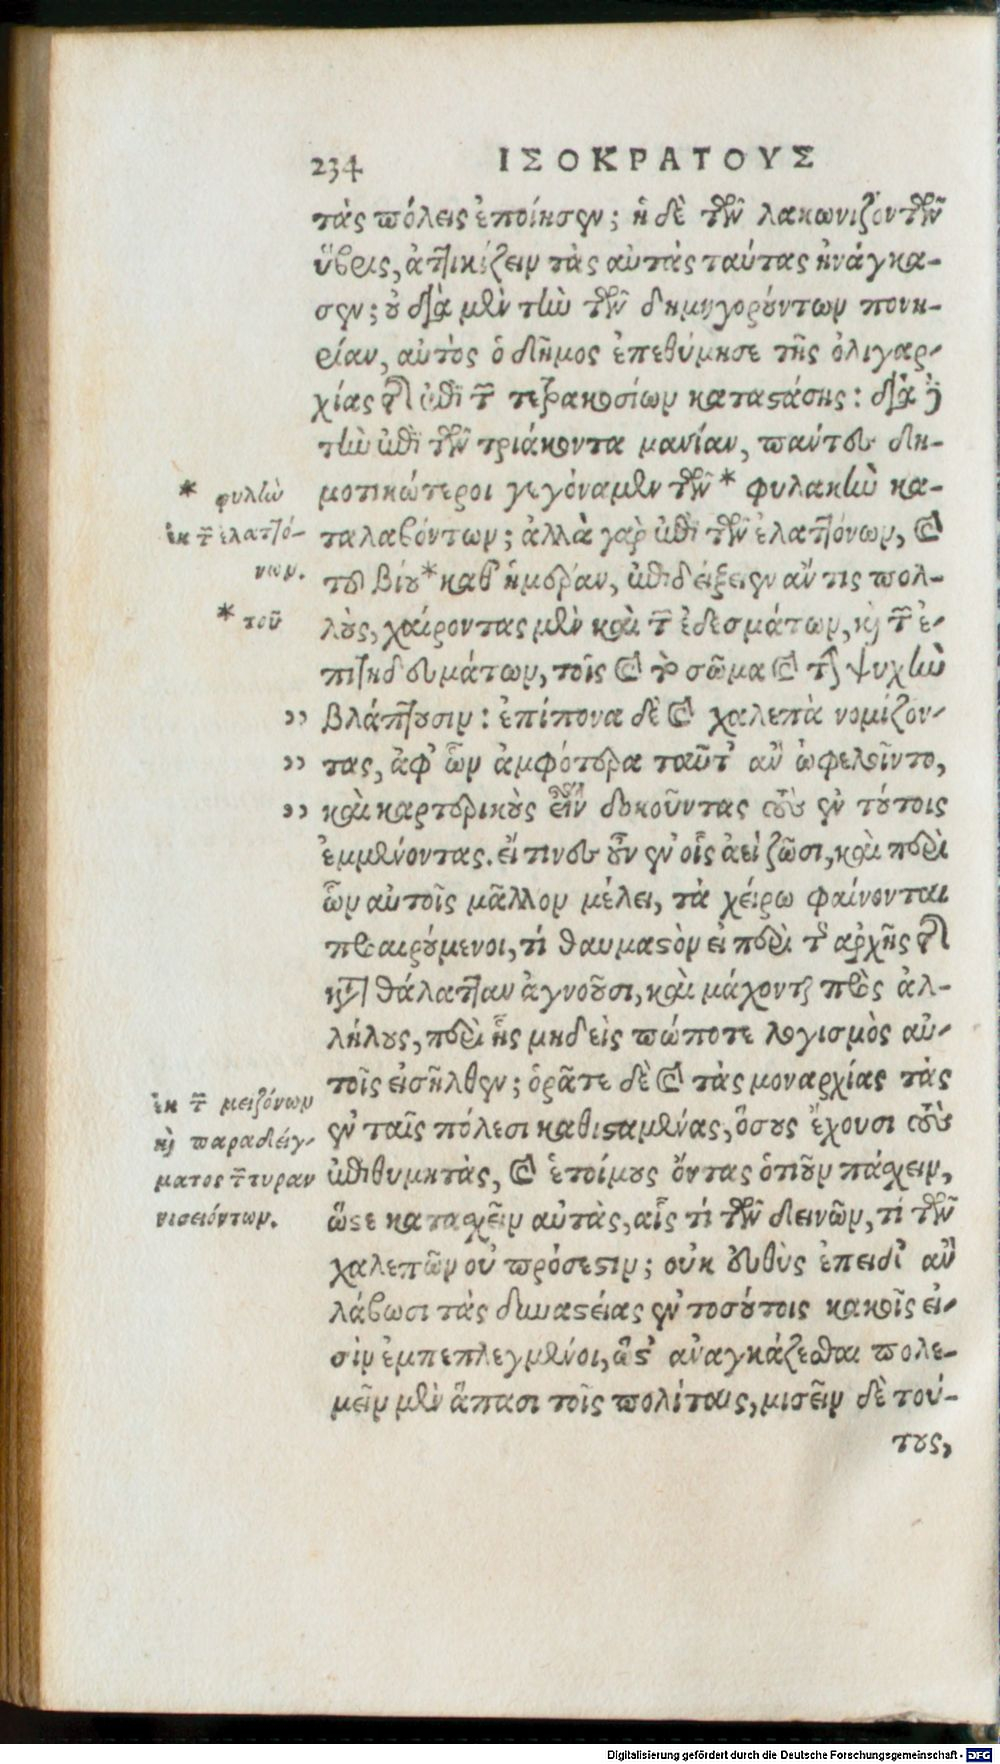 234 ΙΣΟΚΡΑΤΟΥΣ
τὰς πόλεις ἐποίησεν; ἡ δὲ τῶν λακωνιζόντων
ὕβρις, ἀττικίζειν τὰς αὐτὰς ταύτας ἠνάγκα-
σεν; οὐ διὰ μὲν τὴν τῶν δημηγορούντων πονη-
ρίαν, αὐτὸς ὁ δῆμος ἐπεθύμησε τῆς ὀλιγαρ-
χίας τῆς ἐπὶ τῶν τετρακοσίων καταστάσης: διὰ δὲ
τὴν ἐπὶ τῶν τριάκοντα μανίαν, πάντες δη-
* φυλὴν
μοτικώτεροι γεγόναμεν τῶν * φυλακὴν κα-
ἐκ τῶν ἐλαττό-
ταλαβόντων; ἀλλὰ γὰρ ἐπὶ τῶν ἐλαττόνων, καὶ
νων.
τοῦ βίου * καθ' ἡμέραν, ἐπιδείξειεν ἄν τις πολ-
* τοῦ
λοὺς, χαίροντας μὲν καὶ τῶν ἐδεσμάτων, καὶ τῶν ἐ-
πιτηδευμάτων, τοῖς καὶ τὸ σῶμα καὶ τὴν ψυχὴν
" βλάπτουσιν: ἐπίπονα δὲ καὶ χαλεπὰ νομίζον-
" τας, ἀφ' ὧν ἀμφότερα ταῦτ' ἂν ὠφελοῖντο,
" καὶ καρτερικοὺς εἶναι δοκοῦντας τοὺς ἐν τούτοις
ἐμμένοντας. εἴ τινες οὖν ἐν οἷς ἀεὶ ζῶσι, καὶ περὶ
ὧν αὐτοῖς μᾶλλον μέλει, τὰ χείρω φαίνονται
προαιρούμενοι, τί θαυμαστὸν εἰ περὶ τῆς ἀρχῆς τῆς
κατὰ θάλατταν ἀγνοοῦσι, καὶ μάχονται πρὸς ἀλ-
λήλους, περὶ ἧς μηδεὶς πώποτε λογισμὸς αὐ-
τοῖς εἰσῆλθεν; ὁρᾶτε δὲ καὶ τὰς μοναρχίας τὰς
ἐκ τῶν μειζόνων
ἐν ταῖς πόλεσι καθισταμένας, ὅσους ἔχουσι τοὺς
καὶ παραδείγ-
ματος τῶν τυραν
ἐπιθυμητὰς, καὶ ἑτοίμους ὄντας ὁτιοῦν πάσχειν,
νισειόντων.
ὥστε κατασχεῖν αὐτὰς, αἷς τί τῶν δεινῶν, τί τῶν
χαλεπῶν οὐ πρόσεστιν; οὐκ εὐθὺς ἐπειδ' ἂν
λάβωσι τὰς δυναστείας ἐν τοσούτοις κακοῖς εἰ-
σὶν ἐμπεπλεγμένοι, ὥστ' ἀναγκάζεσθαι πολε-
μεῖν μὲν ἅπασι τοῖς πολίταις, μισεῖν δὲ τού-
τους,
Digitalisierung gefördert durch die Deutsche Forschungsgemeinschaft - DFG